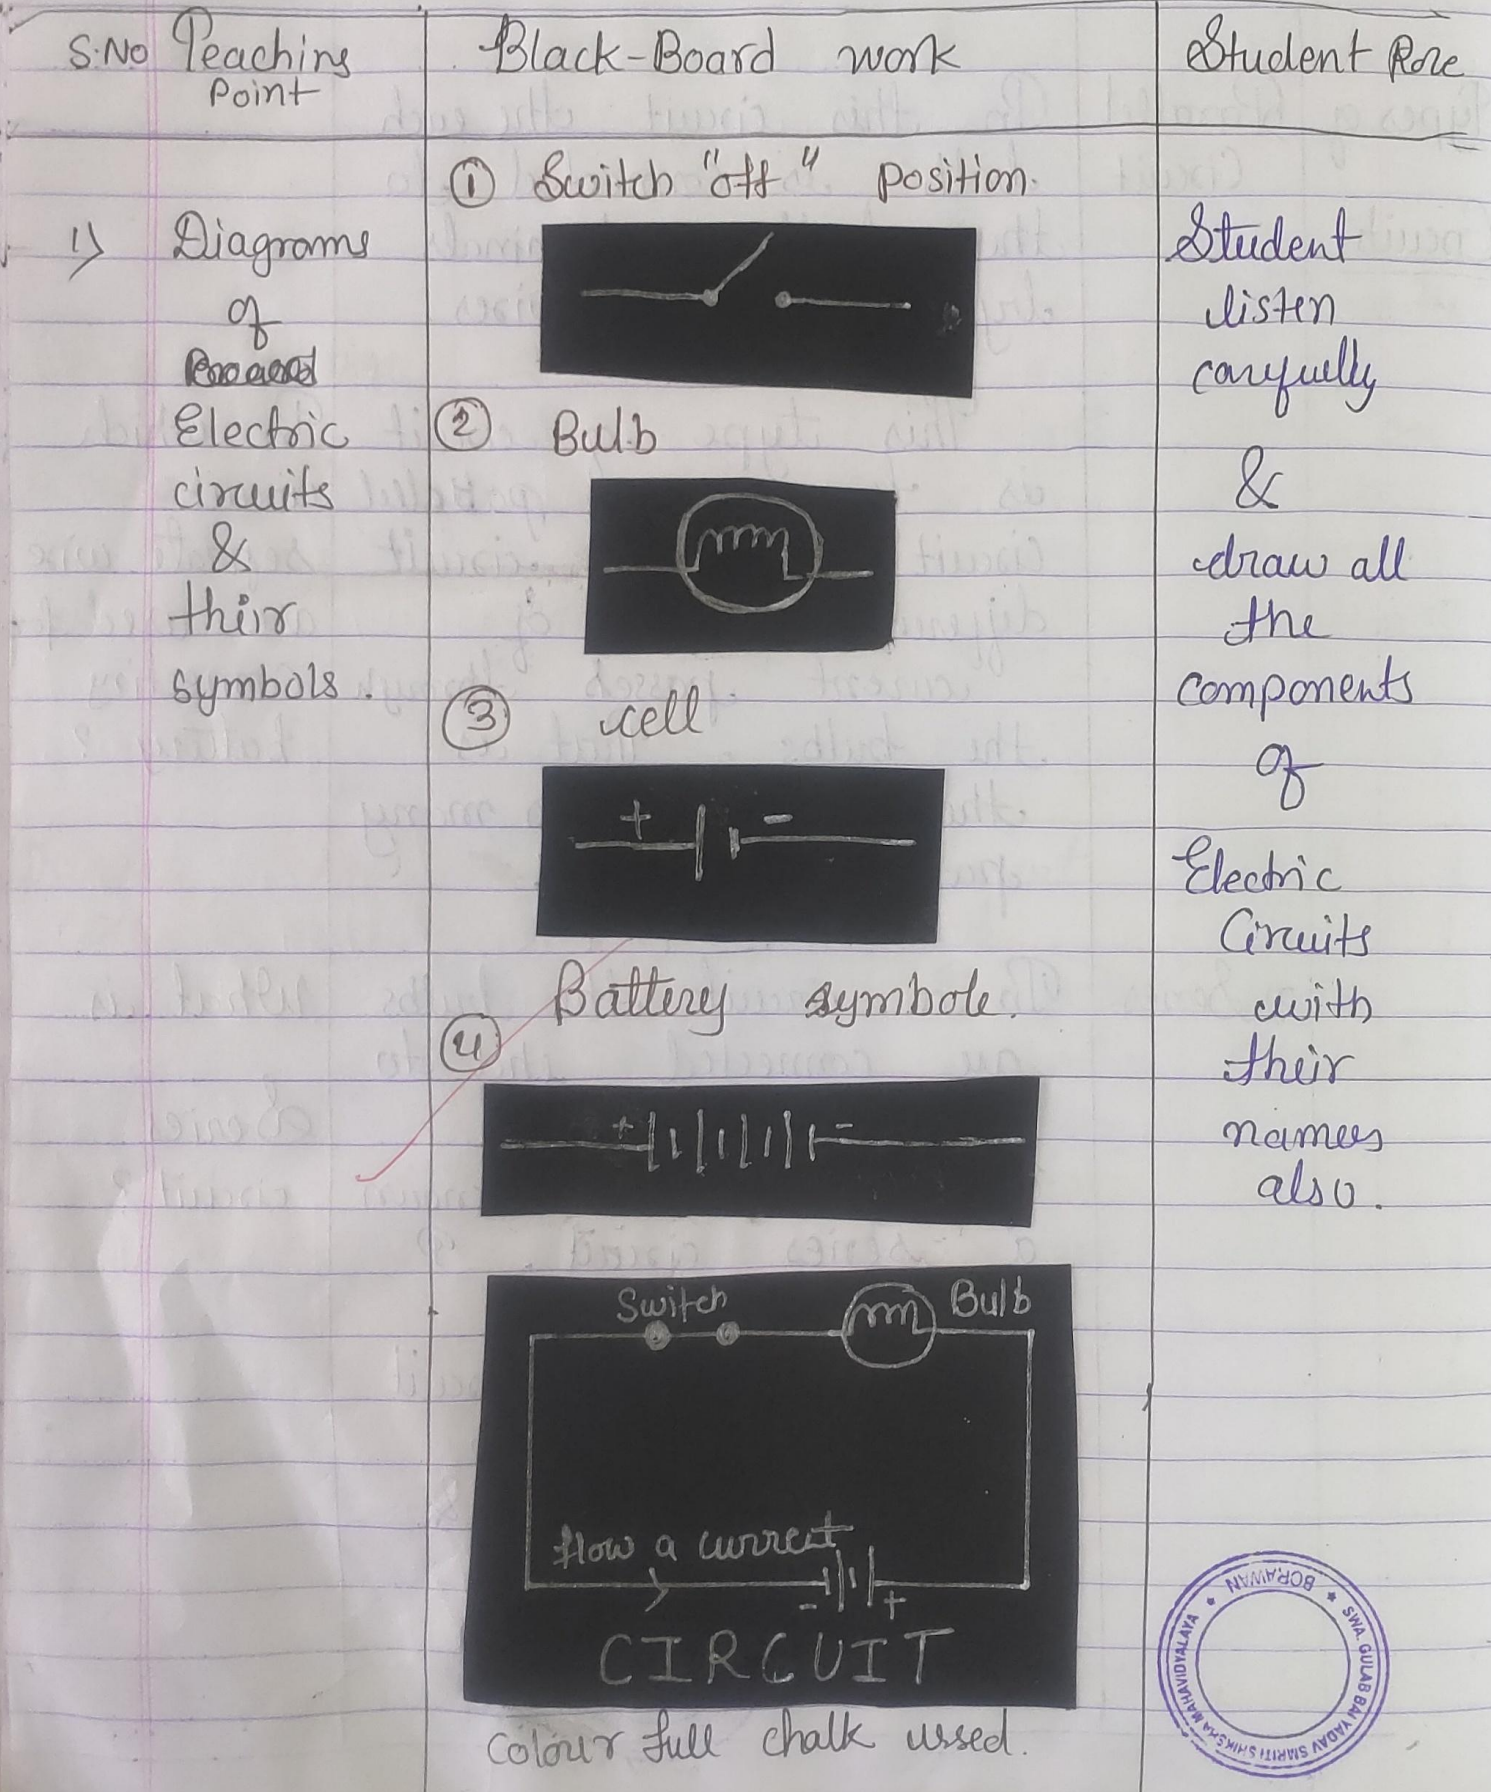 S.No Teaching Point
Black-Board work
Student Role
1) Diagrams
of
Electric
circuits
&
their
symbols.
① Switch "off" position.
② Bulb
③ cell
+ -
④ Battery symbole.
+ -
Switch Bulb
flow a current
- +
CIRCUIT
Colour full chalk ussed.
Student
listen
carefully
&
draw all
the
components
of
Electric
Circuits
with
their
names
also.
SWA. GULAB BAI YADAV SMRITI SHIKSHA MAHAVIDYALAYA
★ BORAWAN ★